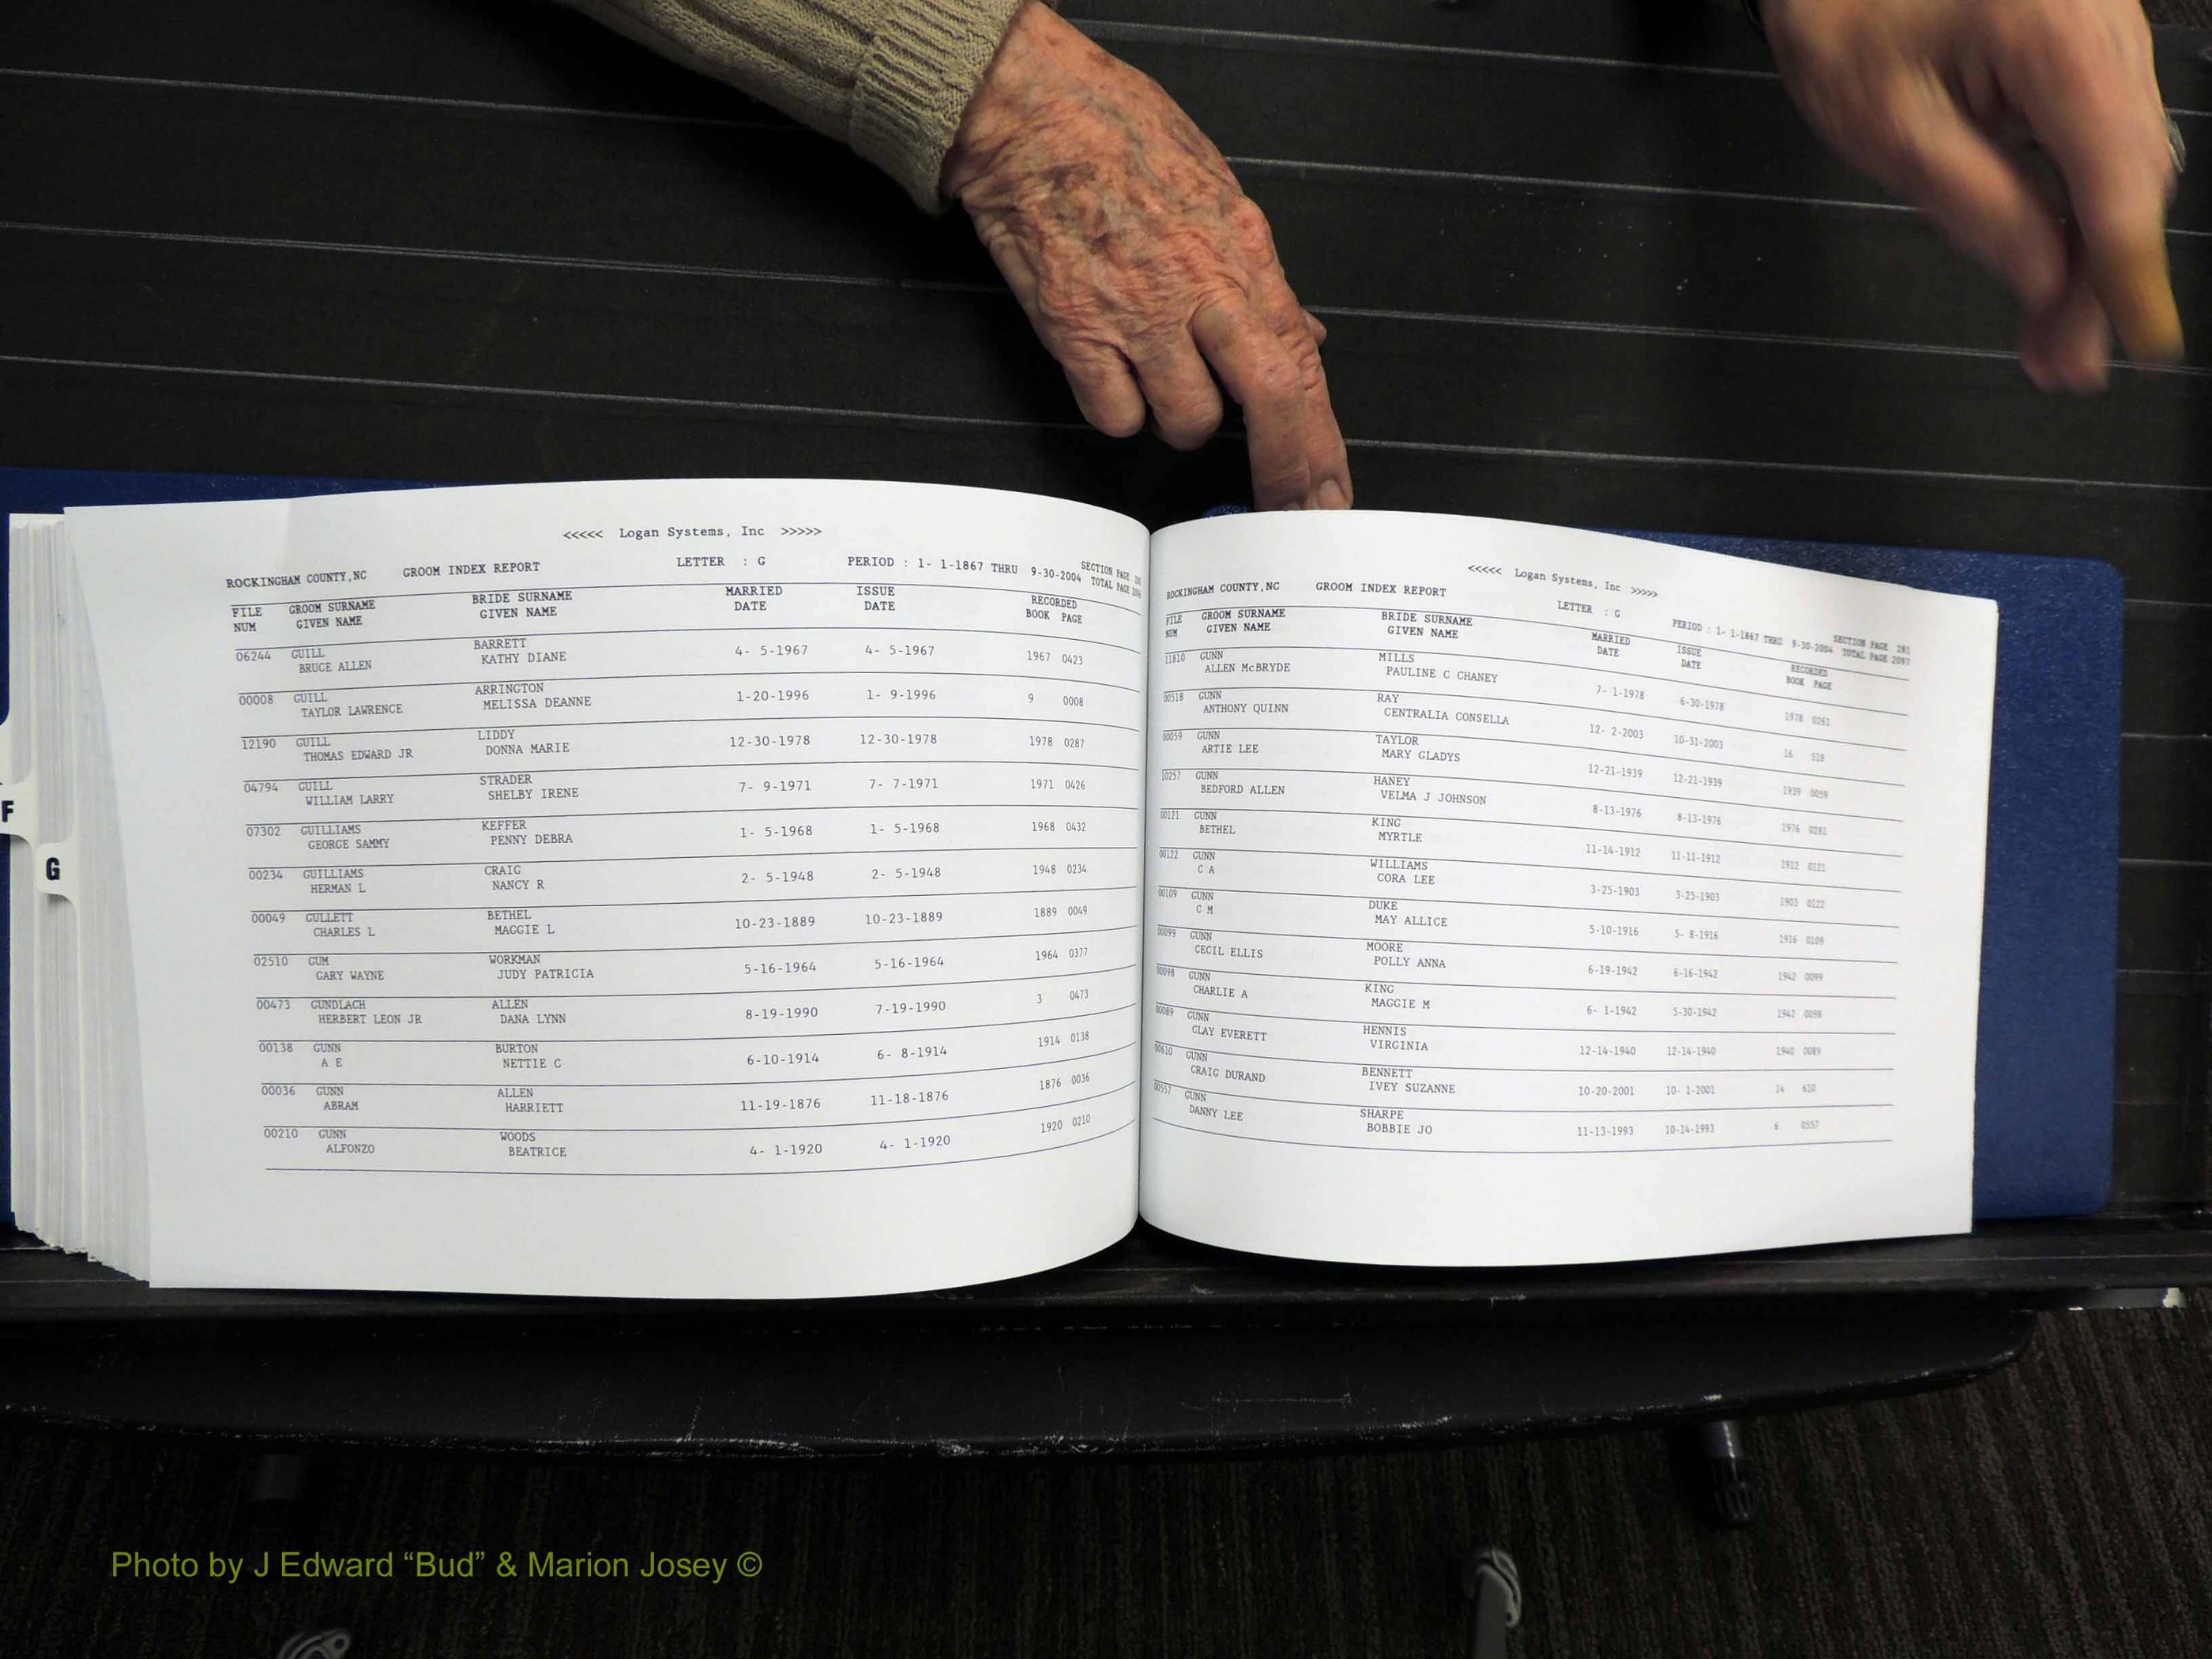 <<<<< Logan Systems, Inc >>>>>
ROCKINGHAM COUNTY,NC GROOM INDEX REPORT LETTER : G PERIOD : 1- 1-1867 THRU 9-30-2004 SECTION PAGE
TOTAL PAGE
FILE GROOM SURNAME BRIDE SURNAME MARRIED ISSUE RECORDED
NUM GIVEN NAME GIVEN NAME DATE DATE BOOK PAGE
06244 GUILL BARRETT 4- 5-1967 4- 5-1967 1967 0423
BRUCE ALLEN KATHY DIANE
00008 GUILL ARRINGTON 1-20-1996 1- 9-1996 9 0008
TAYLOR LAWRENCE MELISSA DEANNE
12190 GUILL LIDDY 12-30-1978 12-30-1978 1978 0287
THOMAS EDWARD JR DONNA MARIE
04794 GUILL STRADER 7- 9-1971 7- 7-1971 1971 0426
WILLIAM LARRY SHELBY IRENE
07302 GUILLIAMS KEFFER 1- 5-1968 1- 5-1968 1968 0432
GEORGE SAMMY PENNY DEBRA
00234 GUILLIAMS CRAIG 2- 5-1948 2- 5-1948 1948 0234
HERMAN L NANCY R
00049 GULLETT BETHEL 10-23-1889 10-23-1889 1889 0049
CHARLES L MAGGIE L
02510 GUM WORKMAN 5-16-1964 5-16-1964 1964 0377
GARY WAYNE JUDY PATRICIA
00473 GUNDLACH ALLEN 8-19-1990 7-19-1990 3 0473
HERBERT LEON JR DANA LYNN
00138 GUNN BURTON 6-10-1914 6- 8-1914 1914 0138
A E NETTIE C
00036 GUNN ALLEN 11-19-1876 11-18-1876 1876 0036
ABRAM HARRIETT
00210 GUNN WOODS 4- 1-1920 4- 1-1920 1920 0210
ALFONZO BEATRICE
F
G
<<<<< Logan Systems, Inc >>>>>
ROCKINGHAM COUNTY,NC GROOM INDEX REPORT LETTER : G PERIOD : 1- 1-1867 THRU 9-30-2004 SECTION PAGE 281
TOTAL PAGE 2097
FILE GROOM SURNAME BRIDE SURNAME MARRIED ISSUE RECORDED
NUM GIVEN NAME GIVEN NAME DATE DATE BOOK PAGE
11810 GUNN MILLS 7- 1-1978 6-30-1978 1978 0261
ALLEN McBRYDE PAULINE C CHANEY
00518 GUNN RAY 12- 2-2003 10-31-2003 16 518
ANTHONY QUINN CENTRALIA CONSELLA
00059 GUNN TAYLOR 12-21-1939 12-21-1939 1939 0059
ARTIE LEE MARY GLADYS
10257 GUNN HANEY 8-13-1976 8-13-1976 1976 0281
BEDFORD ALLEN VELMA J JOHNSON
00121 GUNN KING 11-14-1912 11-11-1912 1912 0121
BETHEL MYRTLE
00122 GUNN WILLIAMS 3-25-1903 3-25-1903 1903 0122
C A CORA LEE
00109 GUNN DUKE 5-10-1916 5- 8-1916 1916 0109
C M MAY ALLICE
00099 GUNN MOORE 6-19-1942 6-16-1942 1942 0099
CECIL ELLIS POLLY ANNA
00098 GUNN KING 6- 1-1942 5-30-1942 1942 0098
CHARLIE A MAGGIE M
00089 GUNN HENNIS 12-14-1940 12-14-1940 1940 0089
CLAY EVERETT VIRGINIA
00610 GUNN BENNETT 10-20-2001 10- 1-2001 14 610
CRAIG DURAND IVEY SUZANNE
00557 GUNN SHARPE 11-13-1993 10-14-1993 6 0557
DANNY LEE BOBBIE JO
Photo by J Edward “Bud” & Marion Josey ©